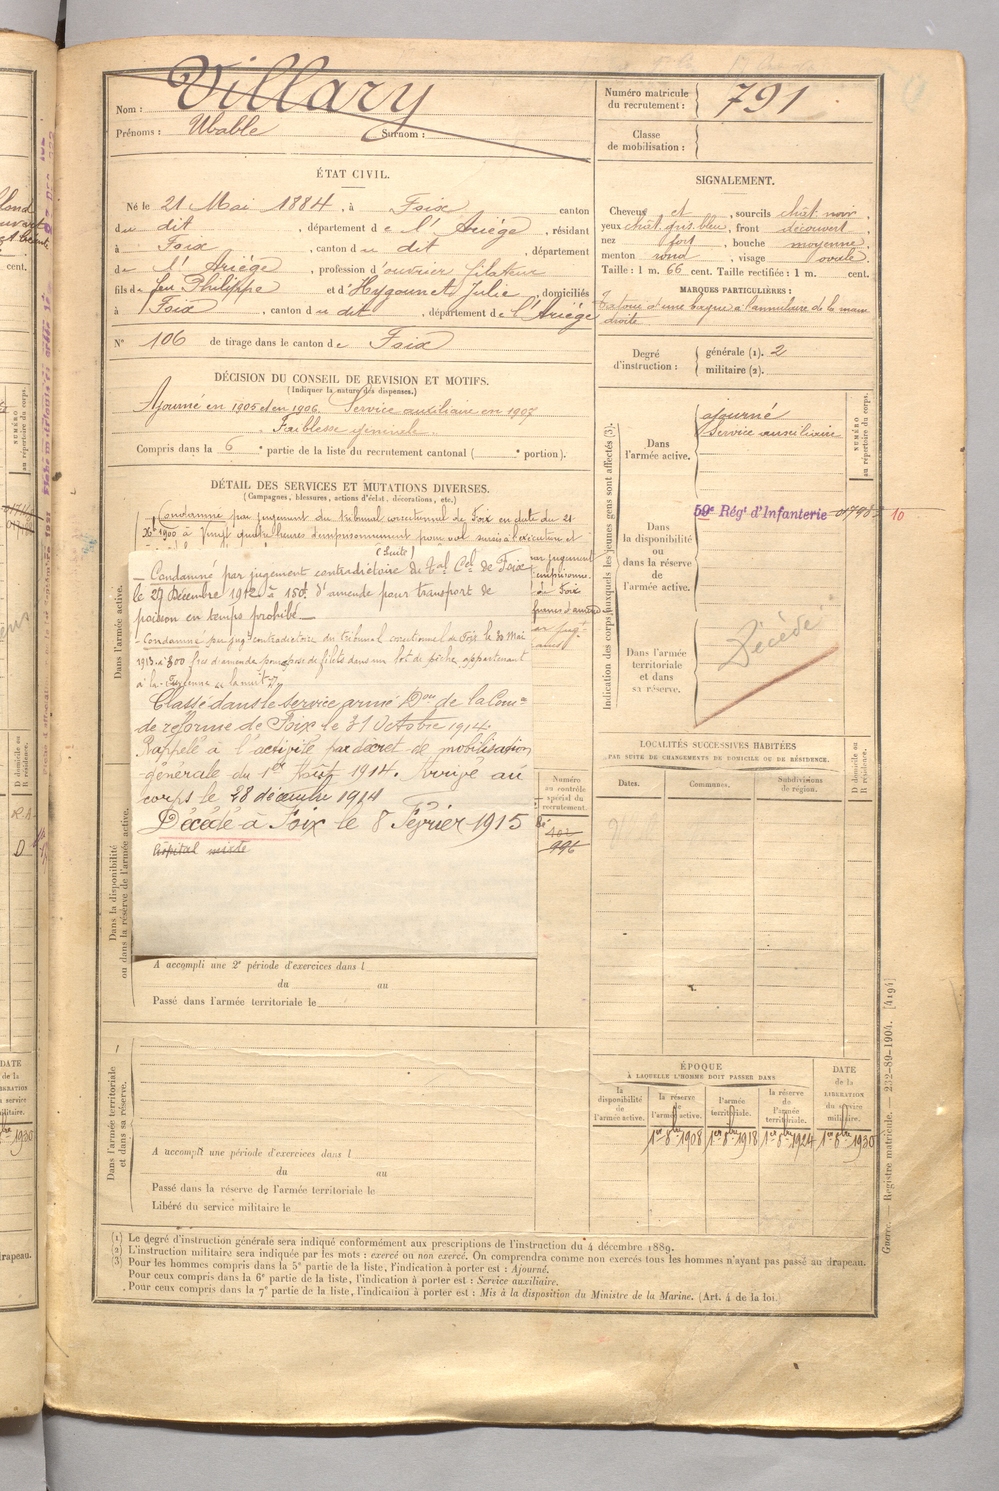 Nom : Villary
Prénoms : Ubable Surnom :
Numéro matricule du recrutement : 791
Classe de mobilisation :
ÉTAT CIVIL.
Né le 21 Mai 1884, à Foix, canton
du dit, département de l'Ariège, résidant
à Foix, canton du dit, département
de l'Ariège, profession d'ouvrier filateur
fils de feu Philippe et d'Hygounet Julie, domiciliés
à Foix, canton du dit, département de l'Ariège
N° 106 de tirage dans le canton de Foix
SIGNALEMENT.
Cheveux et, sourcils chât. noir,
yeux chât. gris. bleu, front découvert,
nez fort, bouche moyenne,
menton rond, visage ovale.
Taille : 1 m. 66 cent. Taille rectifiée : 1 m. cent.
MARQUES PARTICULIÈRES :
Tatoué d'une bague à l'annulaire de la main
droite
Degré d'instruction : générale (1). 2
militaire (2).
DÉCISION DU CONSEIL DE REVISION ET MOTIFS.
(Indiquer la nature des dispenses.)
Ajourné en 1905 et en 1906. Service auxiliaire en 1907
Faiblesse
Compris dans la 6e partie de la liste du recrutement cantonal ( e portion).
DÉTAIL DES SERVICES ET MUTATIONS DIVERSES.
(Campagnes, blessures, actions d'éclat, décorations, etc.)
Condamné par jugement du tribunal correctionnel de Foix en date du 21
Xbre 1900 à Vingt quatre heures d'emprisonnement pour vol sursis à l'exécution et
(Suite)
Condamné par jugement contradictoire du Tal Cel de Foix
le 29 Décembre 1912 à 150f d'amende pour transport de
poisson en temps prohibé
Condamné par jugt contradictoire du Tribunal correctionnel de Foix le 30 Mai
1913 à 300 frcs d'amende pour pose de filets dans un lot de pêche appartenant
à la
par jugement
emprisonne.
de Foix
francs d'amende
par jugt
Classé dans le service armé Don de la Comon
de réforme de Foix le 31 Octobre 1914.
Rappelé à l'activité par décret de mobilisation
générale du 1er Août 1914. Arrivé au
corps le 28 décembre 1914
Décédé à Foix le 8 Février 1915
hôpital mixte
Numéro au contrôle spécial du recrutement.
996
Dans l'armée active.
Dans la disponibilité ou dans la réserve de l'armée active.
A accompli une 2e période d'exercices dans l
du au
Passé dans l'armée territoriale le
Dans l'armée territoriale et dans sa réserve.
A accompli une période d'exercices dans l
du au
Passé dans la réserve de l'armée territoriale le
Libéré du service militaire le
Indication des corps auxquels les jeunes gens sont affectés (3).
NUMÉRO au répertoire du corps.
Dans l'armée active.
ajourné
Service auxiliaire
Dans la disponibilité ou dans la réserve de l'armée active.
59e Régt d'Infanterie 10
Dans l'armée territoriale et dans sa réserve.
Décédé
LOCALITÉS SUCCESSIVES HABITÉES
PAR SUITE DE CHANGEMENTS DE DOMICILE OU DE RÉSIDENCE.
Dates. Communes. Subdivisions de région. D domicile ou R résidence.
ÉPOQUE
À LAQUELLE L'HOMME DOIT PASSER DANS
la disponibilité de l'armée active.
la réserve de l'armée active.
l'armée territoriale.
la réserve de l'armée territoriale.
DATE de la LIBÉRATION du service militaire.
1er 8bre 1908 1er 8bre 1918 1er 8bre 1924 1er 8bre 1930
(1) Le degré d'instruction générale sera indiqué conformément aux prescriptions de l'instruction du 4 décembre 1889.
(2) L'instruction militaire sera indiquée par les mots : exercé ou non exercé. On comprendra comme non exercés tous les hommes n'ayant pas passé au drapeau.
(3) Pour les hommes compris dans la 5e partie de la liste, l'indication à porter est : Ajourné.
Pour ceux compris dans la 6e partie de la liste, l'indication à porter est : Service auxiliaire.
Pour ceux compris dans la 7e partie de la liste, l'indication à porter est : Mis à la disposition du Ministre de la Marine. (Art. 4 de la loi.)
Guerre. — Registre matricule. — 232-89-1904. [4194]